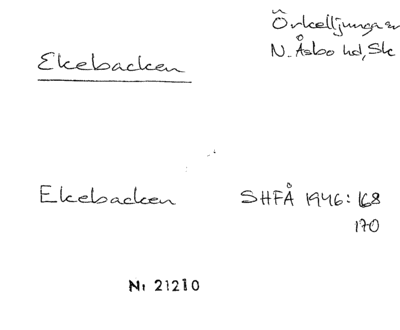 Örkelljunga sn
Ekebacken
N. Åsbo hd, Sk
Ekebacken SHFÅ 1946: 168
170
Nr 21210